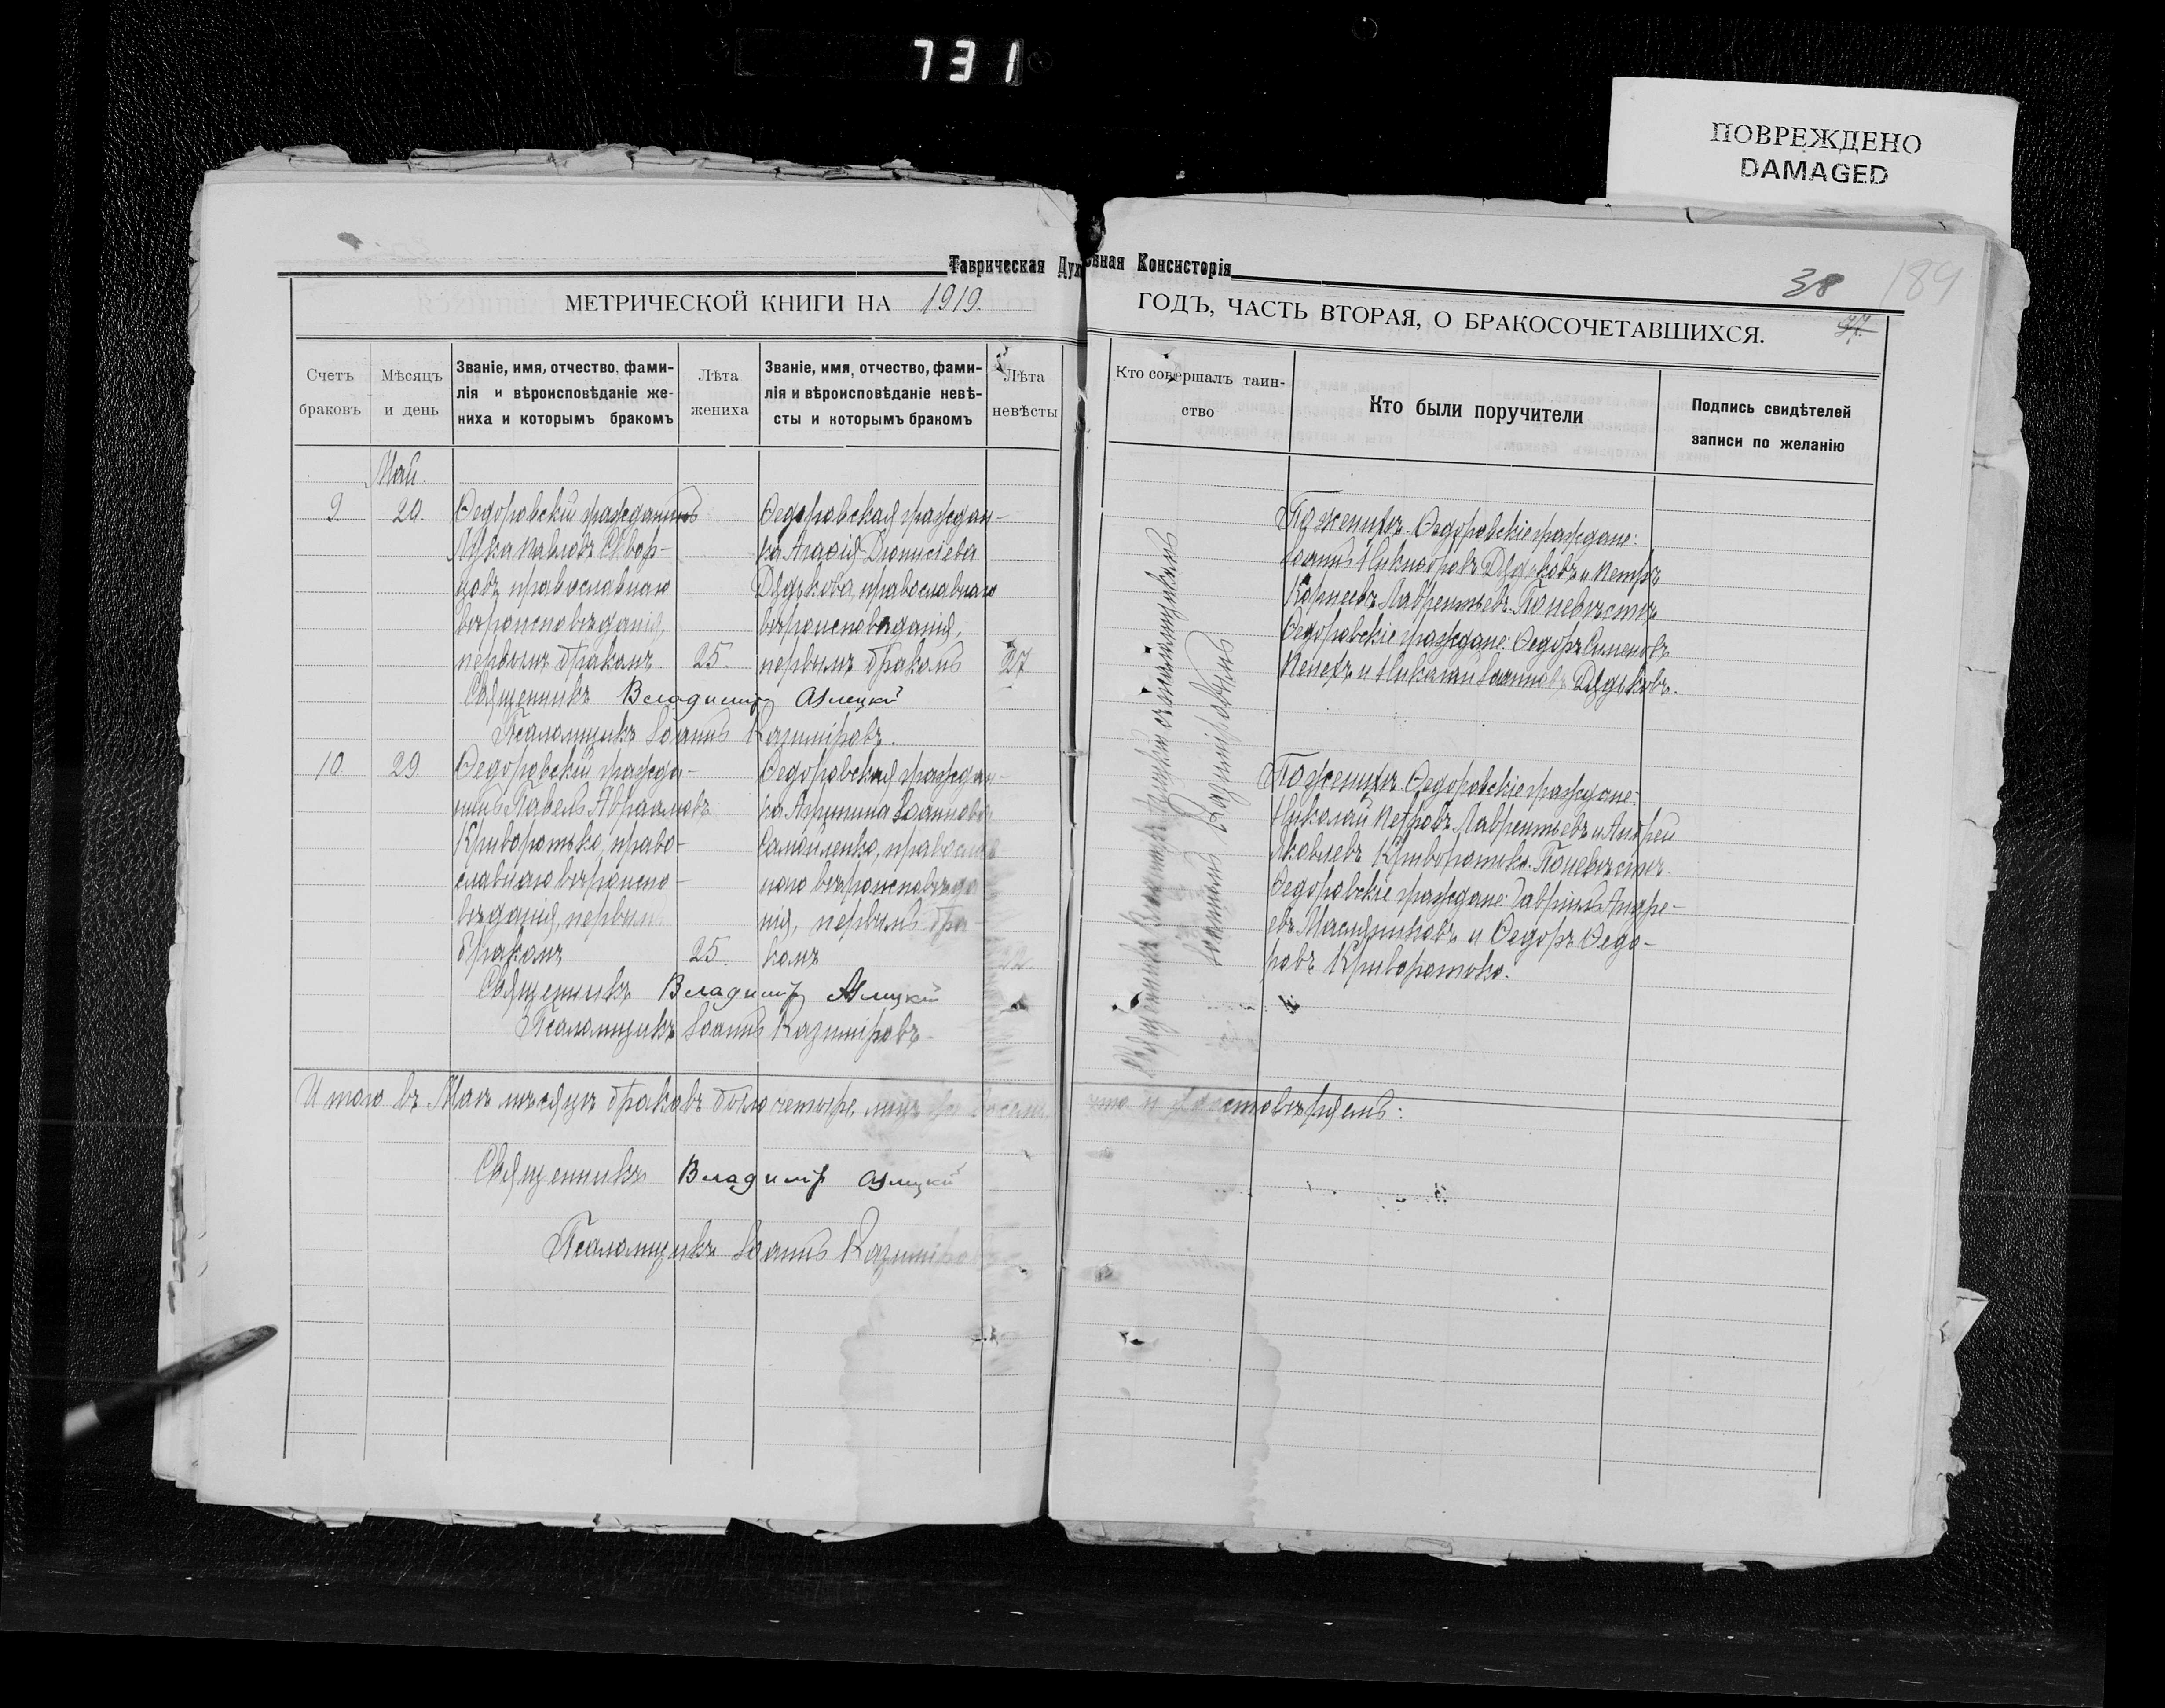 731
ПОВРЕЖДЕНО
DAMAGED
Таврическая Духовная Консисторія
38
184
МЕТРИЧЕСКОЙ КНИГИ НА 1919. ГОДЪ, ЧАСТЬ ВТОРАЯ, О БРАКОСОЧЕТАВШИХСЯ.
Счетъ браковъ
Мѣсяцъ и день
Званіе, имя, отчество, фами-
лія и вѣроисповѣданіе же-
ниха и которымъ бракомъ
Лѣта жениха
Званіе, имя, отчество, фами-
лія и вѣроисповѣданіе невѣ-
сты и которымъ бракомъ
Лѣта невѣсты
Кто совершалъ таин-
ство
Кто были поручители
Подпись свидѣтелей
записи по желанію
Май.
9. 20.
Ѳедоровскій гражданинъ
Лука Павловъ
православнаго
вѣроисповѣданія,
первымъ бракомъ. 25.
Ѳедоровская граждан-
ка Агаѳія Діонисіева
Дядькова, православнаго
вѣроисповѣданія,
первымъ бракомъ 27
Священникъ Владимиръ
Псаломщикъ Іоаннъ Казиміровъ.
По женихѣ: Ѳедоровскіе граждане:
Іоаннъ Никифоровъ Дядьковъ и Петръ
Корнеевъ Лаврентьевъ. По невѣстѣ
Ѳедоровскіе граждане: Ѳедоръ Симеоновъ
и Николай Іоанновъ Дядьковъ.
10. 29
Ѳедоровскій гражда-
нинъ Павелъ Авраамовъ
Криворотько, право-
славнаго вѣроиспо-
вѣданія, первымъ
бракомъ 25.
Ѳедоровская граждан-
ка Іоаннова
Самойленко, православ
наго вѣроисповѣда
нія, первымъ бра
комъ 22.
Священникъ Владимиръ
Псаломщикъ Іоаннъ Казиміровъ.
По женихѣ: Ѳедоровскіе граждане:
Николай Петровъ Лаврентьевъ и Андрей
Яковлевъ Криворотько. По невѣстѣ
Ѳедоровскіе граждане: Гавріилъ Андре-
евъ Масляниковъ и Ѳедоръ Ѳедо-
ровъ Криворотько.
Священникъ съ псаломщикомъ
Іоанномъ Казиміровымъ
Итого въ Маѣ мѣсяцѣ браковъ было четыре, что и удостовѣряемъ:
Священникъ Владимиръ
Псаломщикъ Іоаннъ Казиміровъ